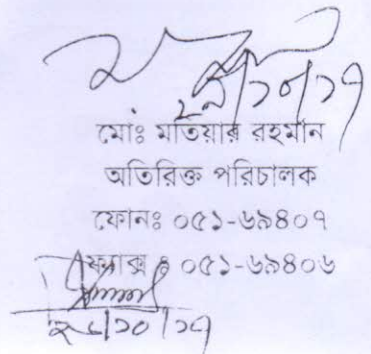 ২৯/১০/১৭
মোঃ মতিয়ার রহমান
অতিরিক্ত পরিচালক
ফোনঃ ০৫১-৬৯৪০৭
ফ্যাক্স ঃ ০৫১-৬৯৪০৬